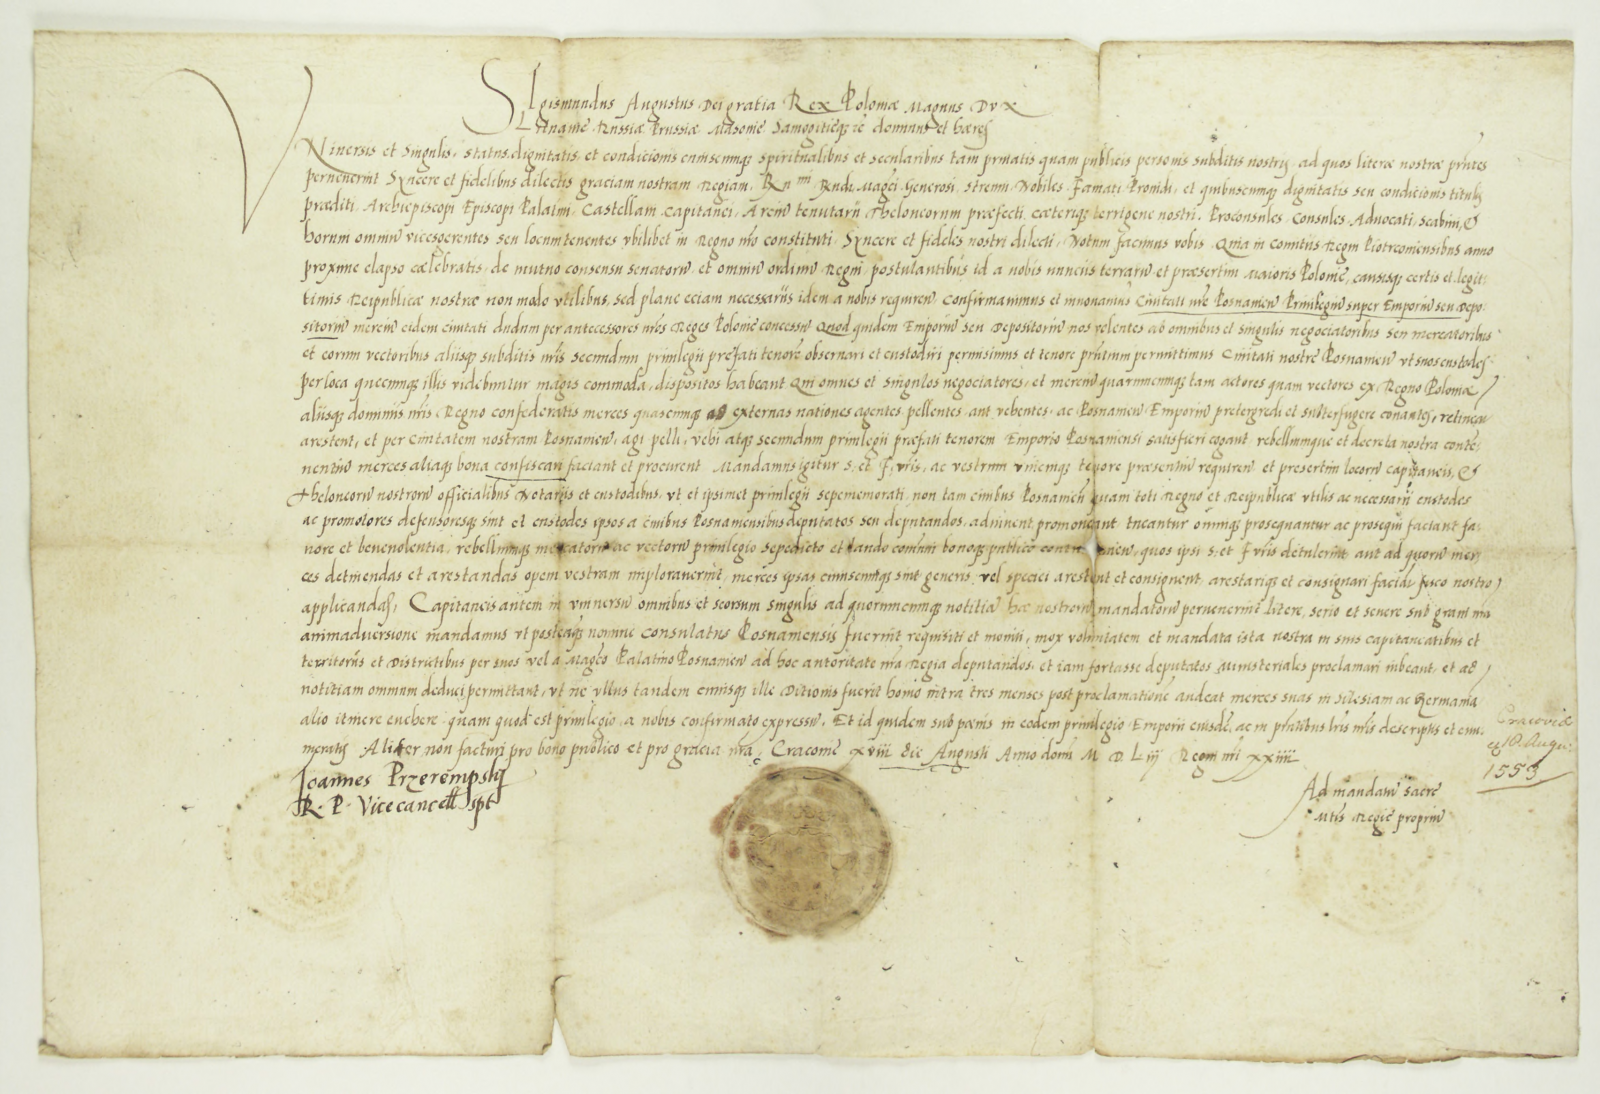 Sigismundus Augustus Dei gratia Rex Poloniæ Magnus Dux
Lituaniæ Russiæ Prussiæ Masoviæ Samogitieq; zc dominus et hæres
Vniuersis et singulis, status, dignitatis, et condicionis cuiuscumq; spiritualibus et secularibus tam priuatis quam publicis personis subditis nostris, ad quos literæ nostræ pñtes
peruenerint Syncere et fidelibus dilectis graciam nostram Regiam. Rn mi Rndi Magci Generosi, strenui Nobiles Famati Prouidi, et quibuscumq; dignitatis seu condicionis titulis
præditi, Archiepiscopi Episcopi Palatini Castellani Capitanei, Arciũ tenutarii Theloneorum præfecti, cæteriq; terrigene nostri. Proconsules Consules Aduocati, scabini, &
horum omniũ vicesgerentes seu locumtenentes vbilibet in Regno nr̃o constituti. Syncere et fideles nostri dilecti. Notum facimus vobis. Quia in comitiis Regni Piotrcouiensibus anno
proxime elapso cælebratis, de mutuo consensu senatorũ et omniũ ordinũ Regni postulantibus id a nobis nunciis terrarũ et præsertim Maioris Poloniẽ, causisq; certis et legit-
timis Reipublicæ nostræ non modo vtilibus, sed plane eciam necessariis idem a nobis requireñ Confirmauimus et innouauimus Ciuitati nr̃e Posnanieñ Priuilegiũ super Emporiũ seu Depo-
sitoriũ merciũ eidem ciuitati dudum per antecessores nr̃os Reges Poloniẽ concessũ Quod quidem Emporiũ seu Depositoriũ nos volentes ab omnibus et singulis negociatoribus seu mercatoribus
et eorum vectoribus aliisq; subditis nr̃is secundum priuilegii prefati tenorẽ obseruari et custodiri permisimus et tenore pñtium permittimus Ciuitati nostrẽ Posnanieñ vt suos custodes
per loca quecunq; illis videbuntur magis commoda, dispositos habeant Qui omnes et singulos negociatores, et merciũ quarumcumq; tam actores quam vectores ex Regno Poloniæ
aliisq; dominiis nr̃is Regno confederatis merces quascumq; ad externas nationes agentes, pellentes aut vehentes, ac Posnanieñ Emporiũ pretergredi et subterfugere conantes, retineãt
arestent, et per Ciuitatem nostram Posnanieñ, agi pelli, vehi atq; secundum priuilegii præfati tenorem Emporio Posnaniensi satisfieri cogant rebelliumque et decreta nostra conte-
nentiũ merces aliaq; bona confiscari faciant et procurent Mandamus igitur S. et F. vr̃is, ac vestrum vnicuiq; tenore præsentiũ requireñ et presertim locorũ capitaneis, &
theloneorũ nostrorũ officialibus Notariis et custodibus, vt et ipsimet priuilegii sepememorati, non tam ciuibus Posnanieñ quam toti Regno et Reipublicæ vtilis ac necessarii custodes
ac promotores defensoresq; sint et custodes ipsos a ciuibus Posnaniensibus deputatos seu deputandos, adiuuent promoueant tueantur omniq; prosequantur ac prosequi faciant fa-
uore et beneuolentia, rebelliumq; mercatorũ ac vectorũ priuilegio sepedicto et laudo comuni bonoq; publico quos ipsi S. et F. vr̃is detulerint aut ad quorũ mer-
ces detinendas et arestandas opem vestram implorauerint, merces ipsas cuiuscumq; sint generis, vel speciei arestent et consignent, arestariq; et consignari faciãt fisco nostro
applicandas, Capitaneis autem in vniuersũ omnibus et seorsum singulis ad quorumcumq; notitiã hæ nostrorũ mandatorũ peruenerint litere, serio et seuere sub graui nr̃a
animaduersione mandamus vt posteaq; nomine Consulatus Posnaniensis fuerint requisiti et moniti, mox voluntatem et mandata ista nostra in suis capitaneatibus et
territoriis et Districtibus per suos vel a Magco Palatino Posnanieñ ad hoc autoritate nr̃a Regia deputandos, et iam fortasse deputatos Ministeriales proclamari iubeant, et ad
notitiam omnium deduci permittant, vt ne vllus tandem cuiusq; ille Ditionis fuerit homo intra tres menses post proclamationẽ audeat merces suas in Silesiam ac Germaniã
alio itinere euehere quam quod est priuilegio a nobis confirmato expressũ. Et id quidem sub pænis in eodem priuilegio Emporii eiusdẽ, ac in pñtibus lr̃is nr̃is descriptis et enu-
meratis Aliter non facturi pro bono publico et pro gracia nr̃a, Cracouiẽ xviii die Augusti Anno domi M D Liij Regni nri xxiiii
Cracoviæ
d. 18 Augu:
1553
Joannes Przerempskij
R. P. Vicecancell sspt
Ad mandatũ sacre
Mtis Regiẽ propriũ